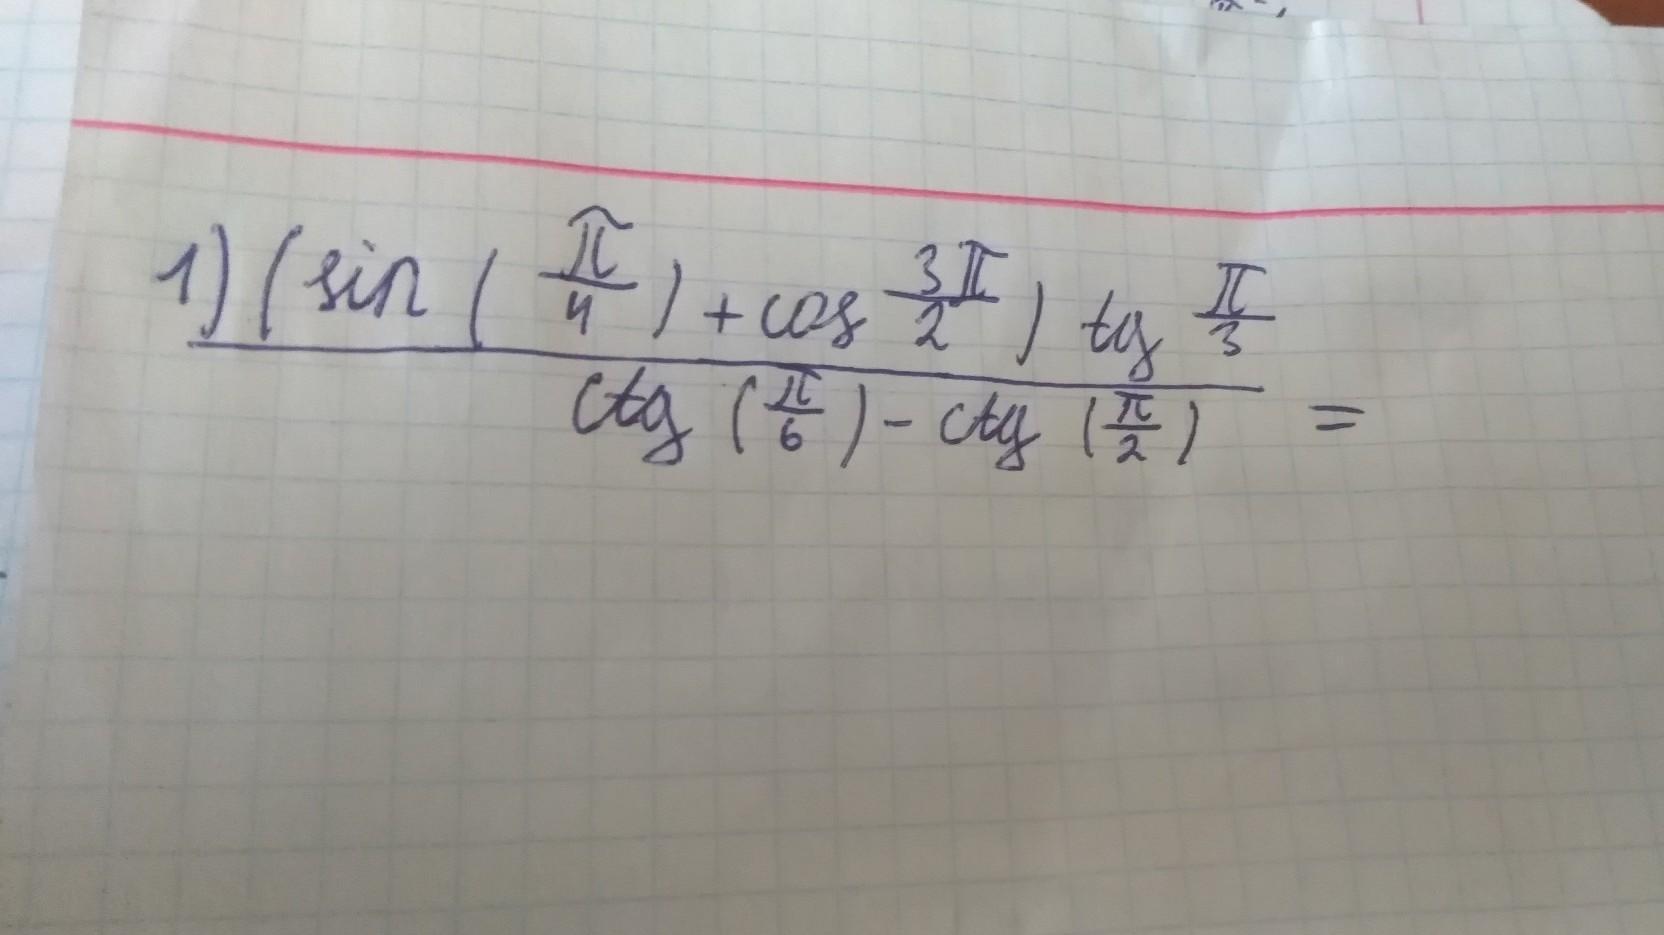 1) (sin (π/4) + cos 3π/2) tg π/3
ctg (π/6) - ctg (π/2) =